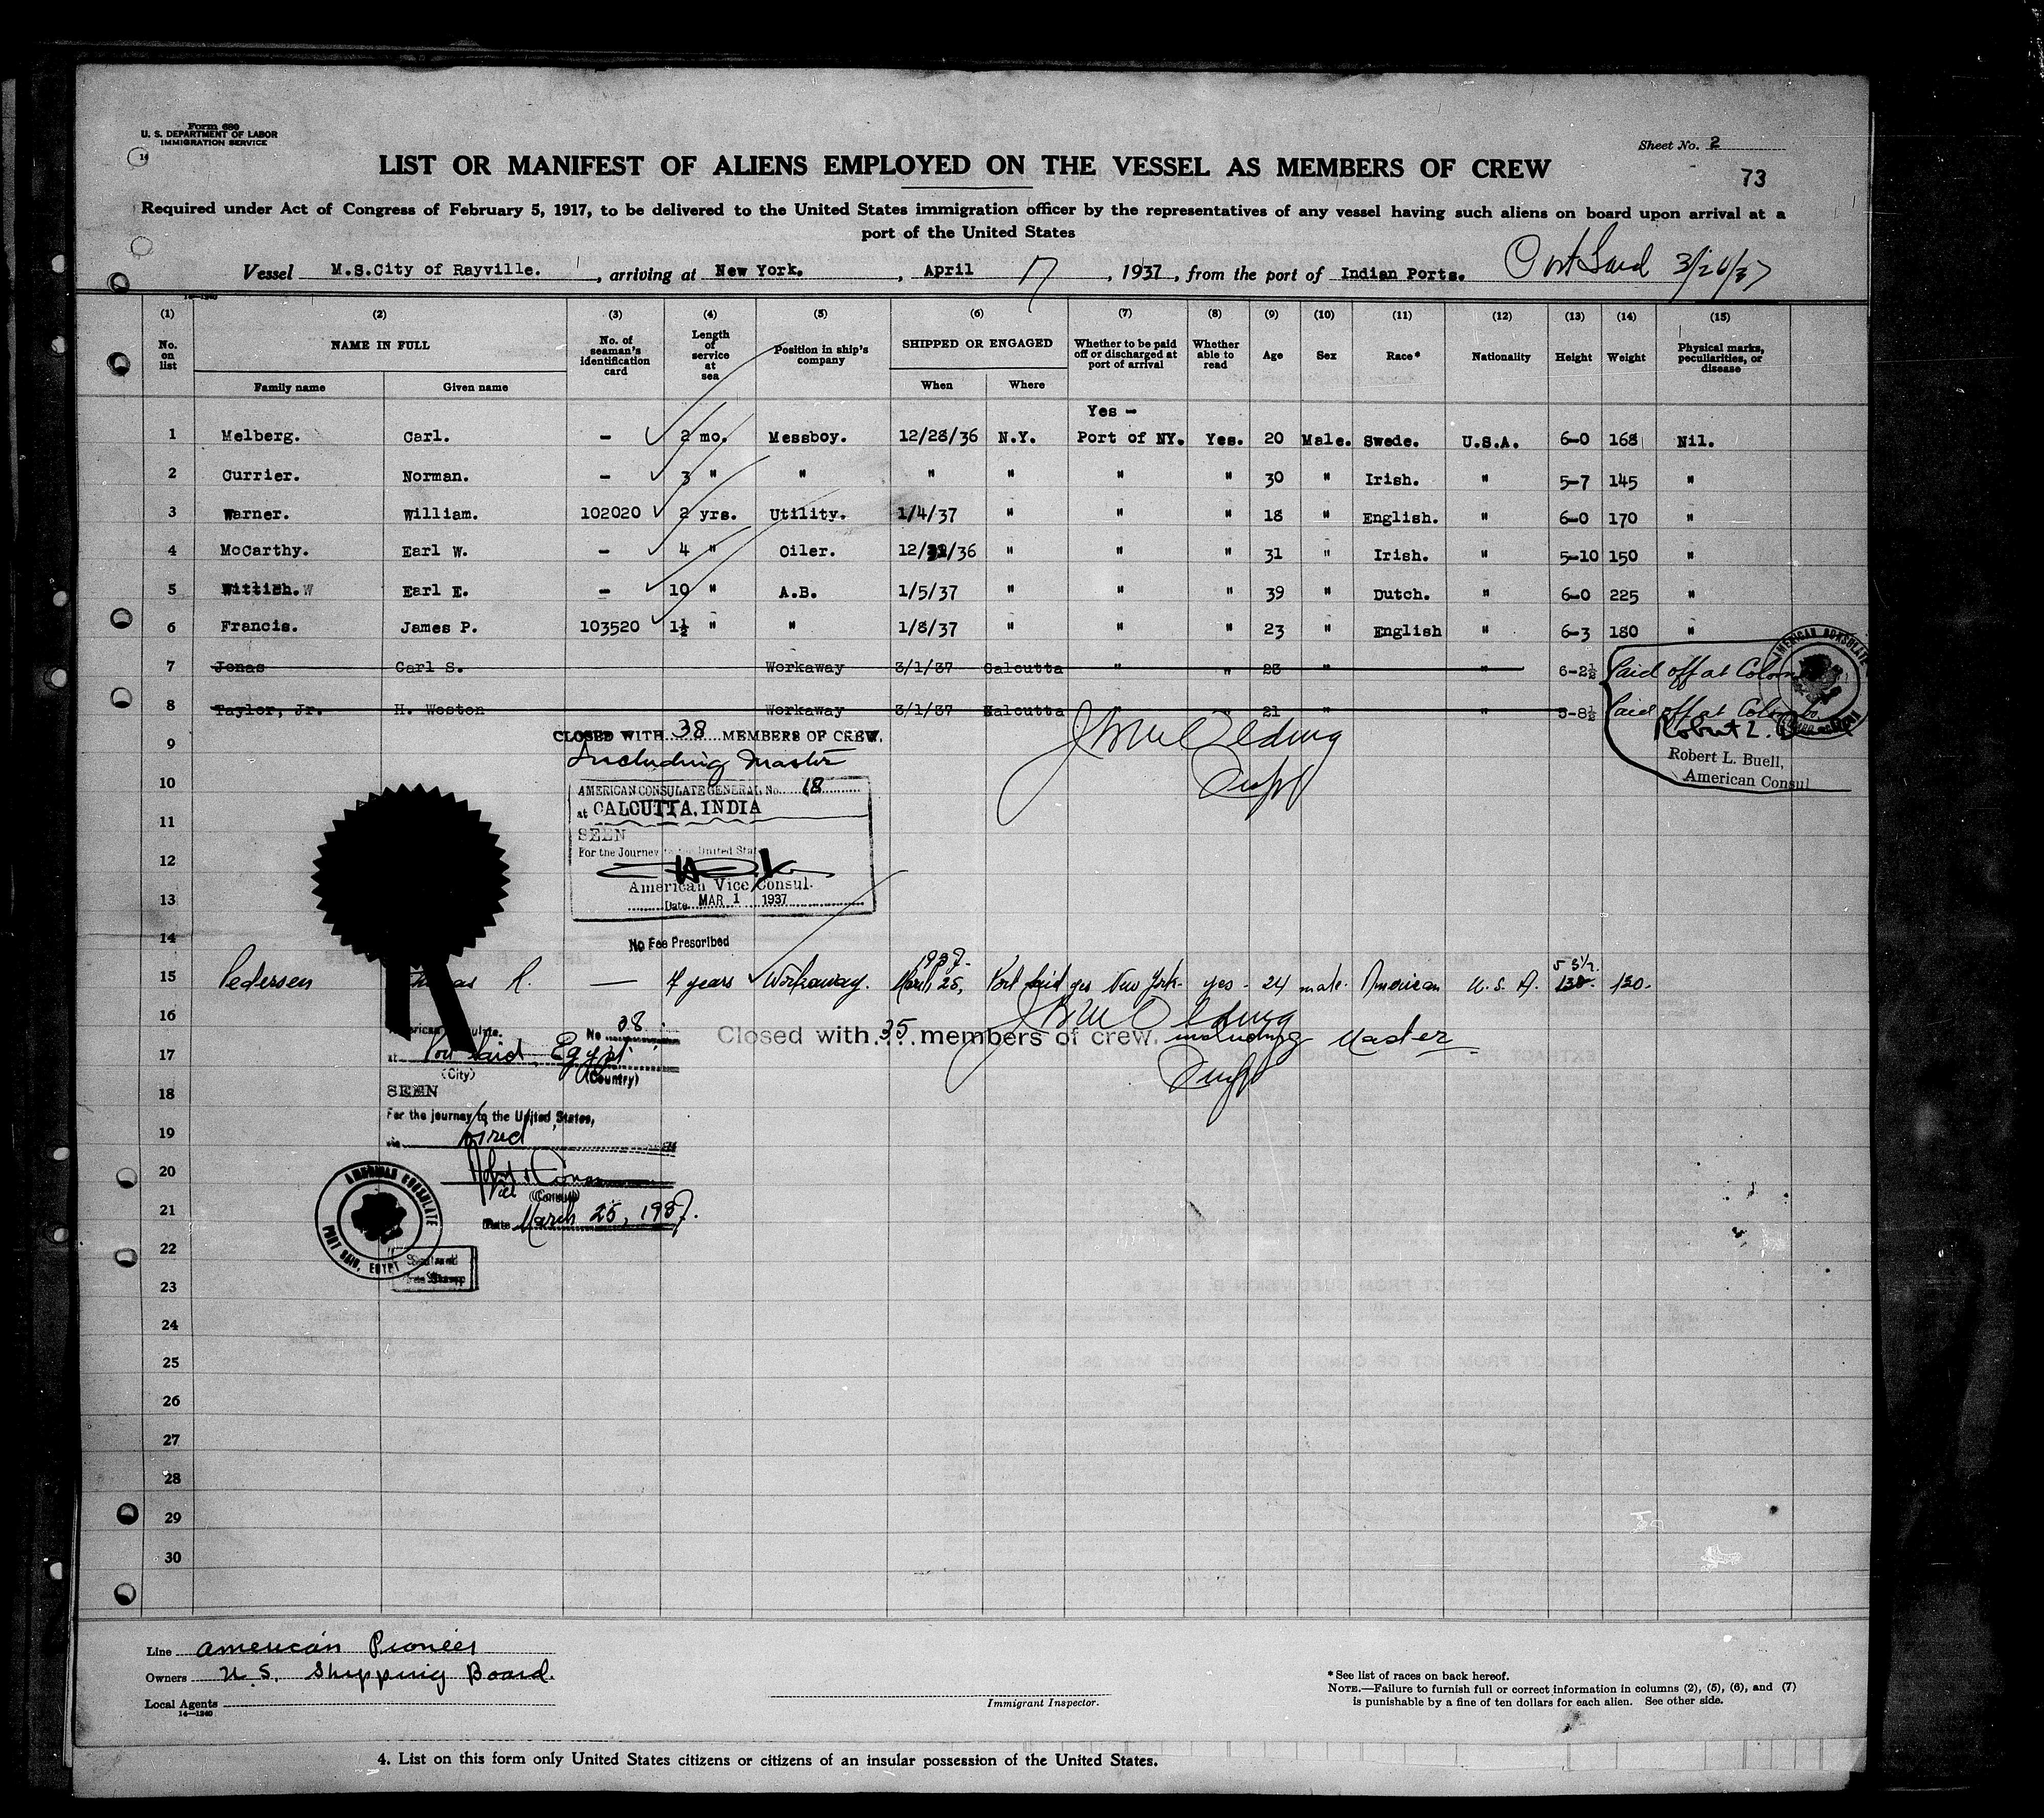 Form 680
U. S. DEPARTMENT OF LABOR
IMMIGRATION SERVICE
14
Sheet No. 2
LIST OR MANIFEST OF ALIENS EMPLOYED ON THE VESSEL AS MEMBERS OF CREW
73
Required under Act of Congress of February 5, 1917, to be delivered to the United States immigration officer by the representatives of any vessel having such aliens on board upon arrival at a
port of the United States
Vessel M.S.City of Rayville. , arriving at New York. , April 17 , 1937 , from the port of Indian Ports. Port Said 3/26/37
14—1240
(1) (2) (3) (4) (5) (6) (7) (8) (9) (10) (11) (12) (13) (14) (15)
No. on list NAME IN FULL No. of seaman's identification card Length of service at sea Position in ship's company SHIPPED OR ENGAGED Whether to be paid off or discharged at port of arrival Whether able to read Age Sex Race* Nationality Height Weight Physical marks, peculiarities, or disease
Family name Given name When Where
Yes -
1 Melberg. Carl. - 2 mo. Messboy. 12/28/36 N.Y. Port of NY. Yes. 20 Male. Swede. U.S.A. 6-0 168 Nil.
2 Currier. Norman. - 3 " " " " " " 30 " Irish. " 5-7 145 "
3 Warner. William. 102020 2 yrs. Utility. 1/4/37 " " " 18 " English. " 6-0 170 "
4 McCarthy. Earl W. - 4 " Oiler. 12/ /36 " " " 31 " Irish. " 5-10 150 "
5 Wittich. W Earl E. - 10 " A.B. 1/5/37 " " " 39 " Dutch. " 6-0 225 "
6 Francis. James P. 103520 1½ " " 1/8/37 " " " 23 " English " 6-3 180 "
7 Jonas Carl S. Workaway 3/1/37 Calcutta " " 23 " " 6-2½ Paid off at Colombo
8 Taylor, Jr. H. Weston Workaway 3/1/37 Calcutta " " 21 " " 5-8½ Paid off at Colombo
AMERICAN CONSULATE
Robert L. Buell
Robert L. Buell,
American Consul
9 CLOSED WITH 38 MEMBERS OF CREW.
Including Master
10 AMERICAN CONSULATE GENERAL No. 18
at CALCUTTA, INDIA
11 SEEN
For the Journey to the United States
12
American Vice Consul.
13 Date MAR 1 1937
14 No Fee Prescribed
1937.
15 Pedersen Thomas R. — 4 years Workaway. March 25, Port Said yes New York- yes - 24 male. American U. S. A. 5 3½. 130. 130.
16 American Consulate. No 38
Closed with 35 members of crew. including Master
17 at Port Said, Egypt
(City) (Country)
18 SEEN
For the journey to the United States,
19 via
20
(Consul)
21 Date March 25, 1937.
AMERICAN CONSULATE
PORT SAID, EGYPT
22
23
24
25
26
27
28
29
30
Line American Pioneer
Owners U.S. Shipping Board.
Local Agents
14—1240
Immigrant Inspector.
* See list of races on back hereof.
NOTE.—Failure to furnish full or correct information in columns (2), (5), (6), and (7)
is punishable by a fine of ten dollars for each alien. See other side.
4. List on this form only United States citizens or citizens of an insular possession of the United States.